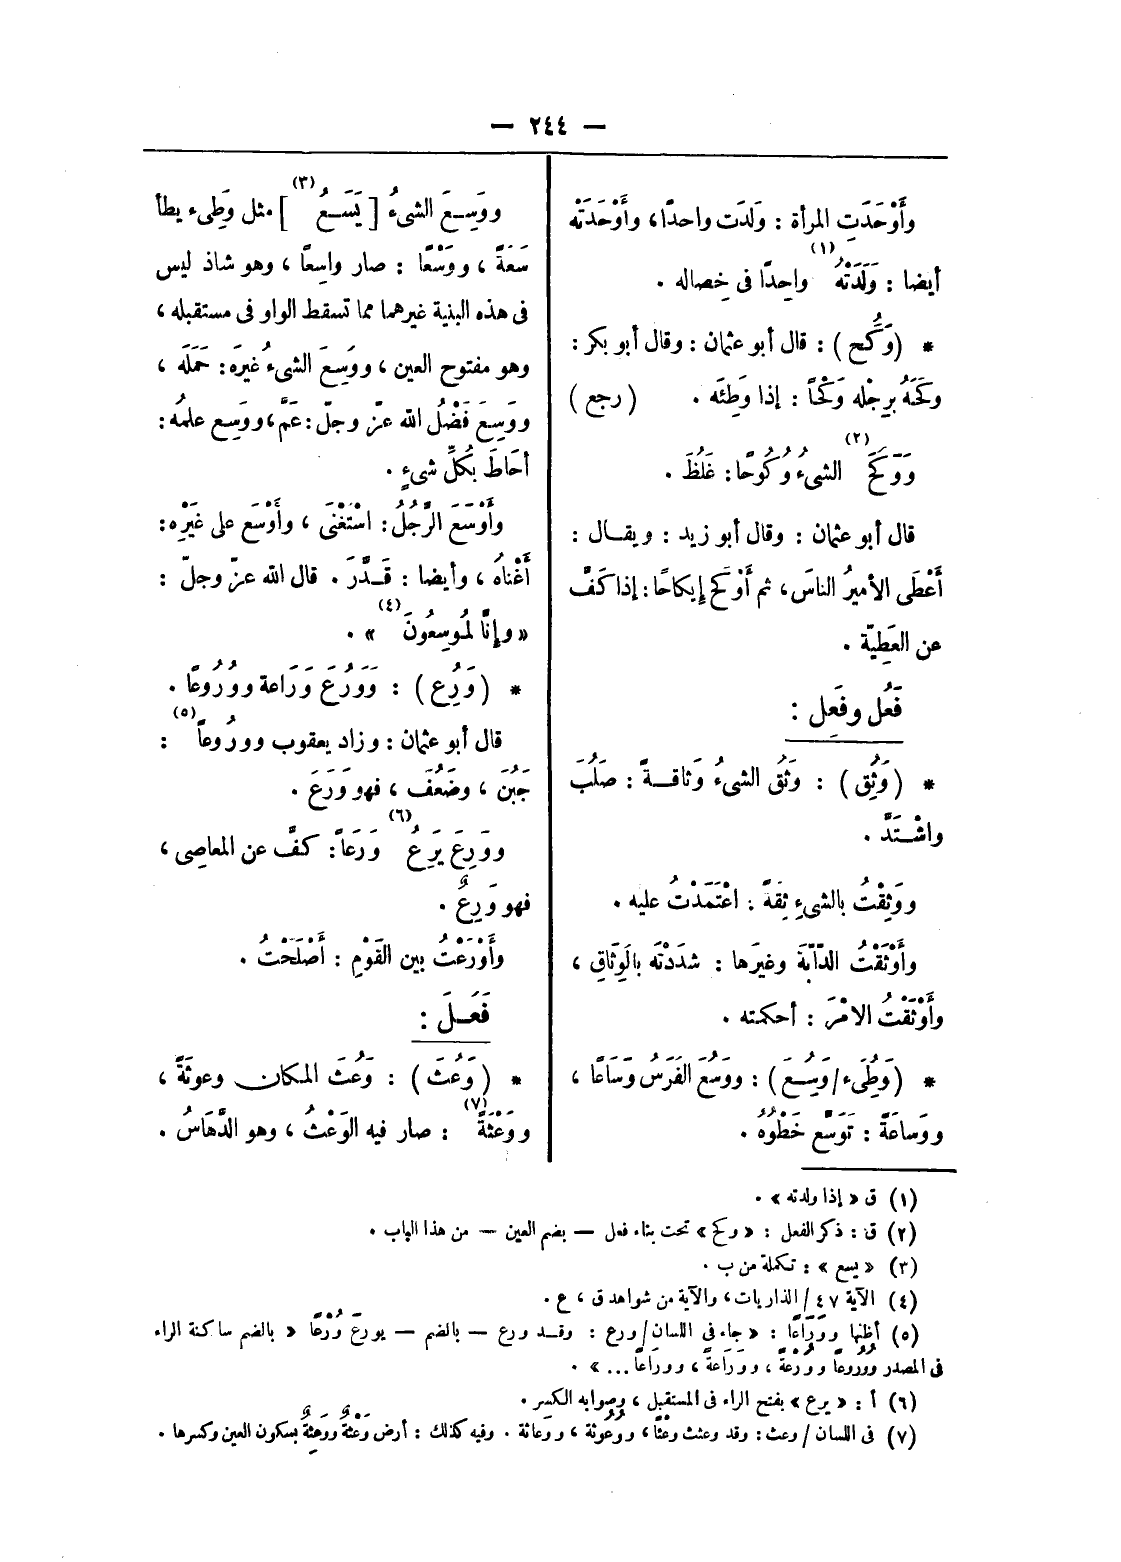 — ٢٤٤ —
وأَوْحَدَتِ المرأة : وَلَدَت واحدًا، وأَوْحَدَتْه
أيضا : وَلَدَتْهُ (١) واحِدًا فى خِصاله .
* (وَكَح) : قال أبو عثمان : وقال أبو بكر :
وكَحَهُ بِرِجْله وَكْحًا : إذا وَطِئَه . (رجع)
وَوَكَحَ (٢) الشىءُ وُكُوحًا : غَلُظَ .
قال أبو عثمان : وقال أبو زيد : ويقـال :
أَعْطَى الأميرُ الناسَ، ثم أَوْكَح إيكاحًا : إذا كَفَّ
عن العَطِيّة .
فَعُل وفَعِل :
* (وَثُِق) : وَثُق الشىءُ وَثاقـةً : صَلُبَ
واشْـتَدَّ .
ووَثِقْتُ بالشىءِ ثِقَةً : اعْتَمَدْتُ عليه .
وأَوْثَقْتُ الدّابّة وغيرَها : شدَدْتَه بالوِثَاقِ ،
وأَوْثَقْتُ الامْرَ : أحكمته .
* (وَطُىء/وَسُِع) : ووَسُعَ الفَرَسُ وَسَاعًا ،
ووَساعَةً : تَوَسَّع خَطْوُهُ .
ووَسِعَ الشىءُ [يَسَـعُ (٣)] مثل وَطِىء يطأ
سَعَةً ، ووَسْعًا : صار واسِعًا ، وهو شاذ ليس
فى هذه البنية غيرهما مما تسقط الواو فى مستقبله ،
وهو مفتوح العين ، ووَسِعَ الشىءُ غيرَه : حَمَلَه ،
ووَسِعَ فَضْلُ الله عزّ وجلّ : عَمَّ، ووَسِع علمُه :
أحَاطَ بكُلِّ شىءٍ .
وأَوْسَعَ الرَّجُلُ : اسْتَغْنَى ، وأَوْسَع على غَيْرِه :
أَغْناهُ ، وأيضا : قَـدَّرَ . قال الله عزّ وجلّ :
« وإنَّا لَمُوسِعُونَ (٤) » .
* (وَرُِع) : وَوَرُعَ وَرَاعة ووُرُوعًا .
قال أبو عثمان : وزاد يعقوب وورُوعاً (٥) :
جَبُنَ ، وضَعُفَ ، فهو وَرَعَ .
ووَرِعَ يَرِعُ (٦) وَرَعاً : كفَّ عن المعاصِى ،
فهو وَرِعٌ .
وأَوْرَعْتُ بين القَوْمِ : أَصْلَحْتُ .
فَعَـلَ :
* (وَعُثَ) : وَعُثَ المكان وعوثَةً ،
ووَعْثَةً (٧) : صار فيه الوَعْثُ ، وهو الدَّهَاسُ .
(١) ق « إذا ولدته » .
(٢) ق : ذكر الفعل : « وكح » تحت بناء فعل — بضم العين — من هذا الباب .
(٣) « يسع » : تكملة من ب .
(٤) الآية ٤٧/الذاريات، والآية من شواهد ق ، ع .
(٥) أظنها ووَرَاعًا : « جاء فى اللسان/ورع : وقـد ورع — بالضم — يورع وُرْعًا « بالضم ساكنة الراء
فى المصدر ووُرُوعًا ووُرْعَةً ، ووَرَاعَةً ، ووراعًا ... » .
(٦) أ : « يرع » بفتح الراء فى المستقبل ، وصوابه الكسر .
(٧) فى اللسان/وعث : وقد وعثت وعْثًا، ووُعُوثة ، ووَعاثة . وفيه كذلك : أرض وَعْثَةٌ ووَعِثَةٌ بسكون العين وكسرها .